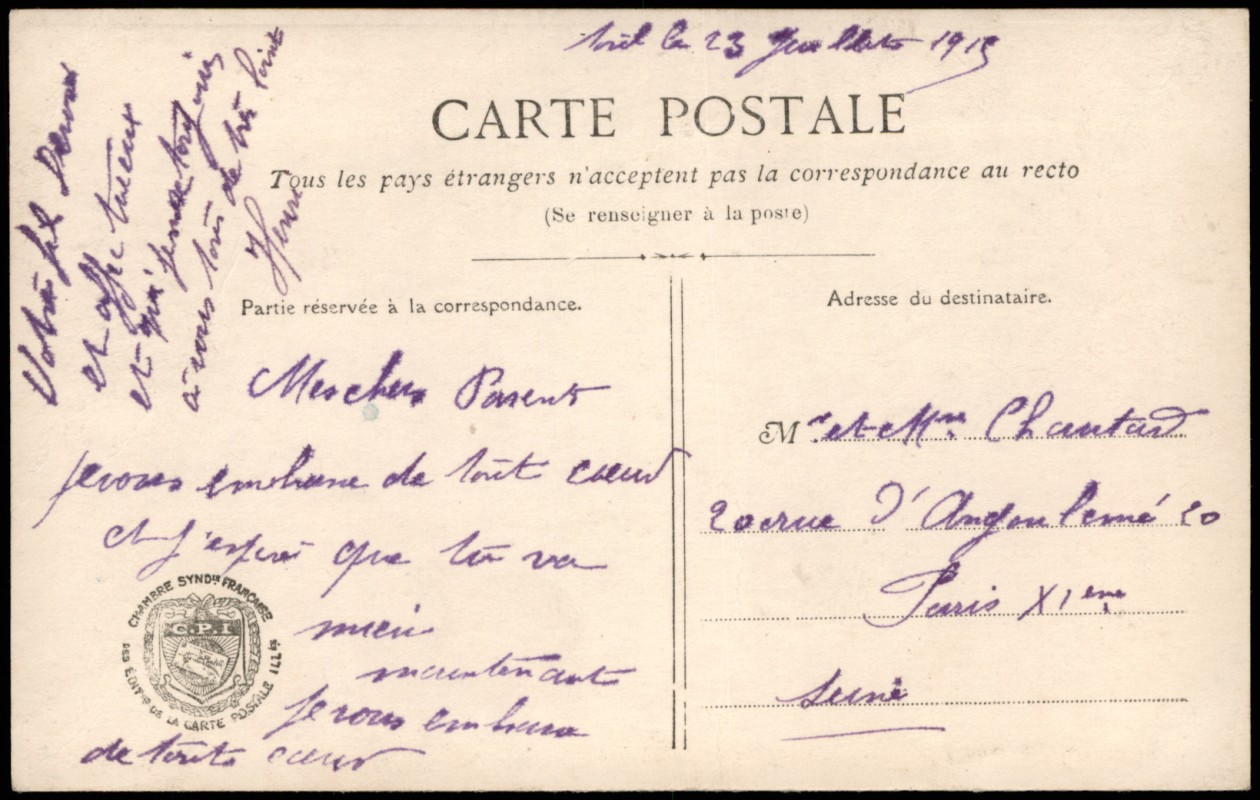 le 23 Juillet 1915
CARTE POSTALE
Tous les pays étrangers n'acceptent pas la correspondance au recto
(Se renseigner à la poste)
Partie réservée à la correspondance.
Mes chers Parents
Je vous embrasse de tout cœur
et j'espère que tu va
mieu
maintenant
Je vous embrasse
de touts cœur
Votre fil
et affectueux
et qui pense toujours
à vous tous de très loin
Henri
Adresse du destinataire.
Mr et Mme Chautard
20 rue d'Angoulemé 20
Paris XIeme
Seine
CHAMBRE SYNDle FRANÇAISE
DES ÉDITrs DE LA CARTE POSTALE ILLée
C.P.I